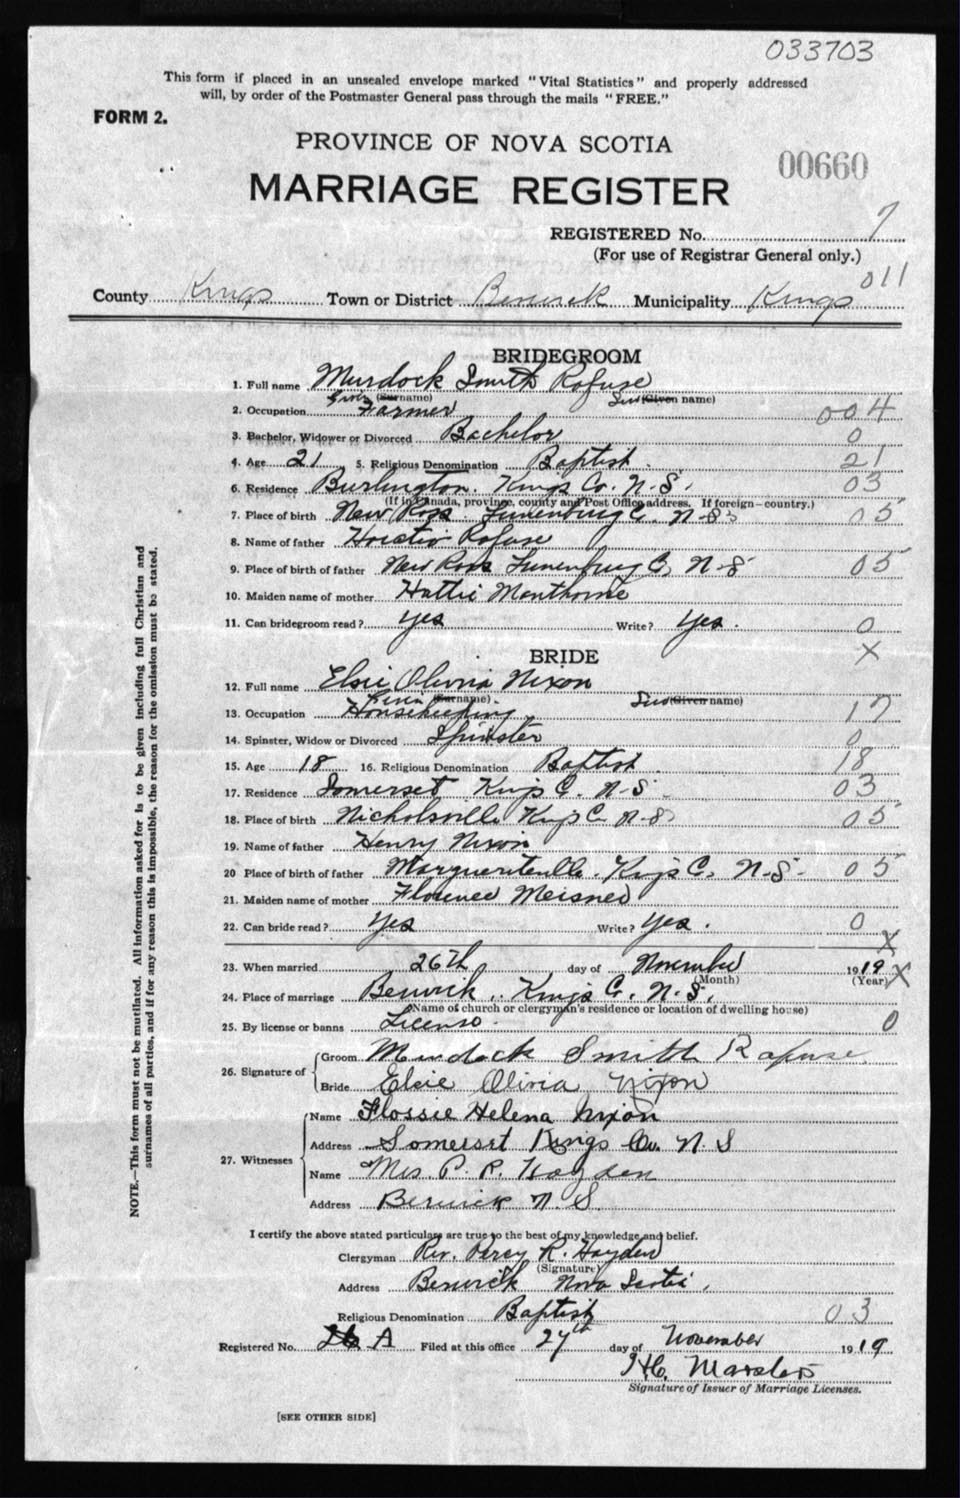 033703
This form if placed in an unsealed envelope marked "Vital Statistics" and properly addressed
will, by order of the Postmaster General pass through the mails "FREE."
FORM 2.
PROVINCE OF NOVA SCOTIA
00660
MARRIAGE REGISTER
REGISTERED No. 7
(For use of Registrar General only.)
011
County Kings Town or District Berwick Municipality Kings
BRIDEGROOM
1. Full name Murdock Smith Rafuse
Given (Surname) Sur (Given name)
2. Occupation Farmer 004
3. Bachelor, Widower or Divorced Bachelor 0
4. Age 21 5. Religious Denomination Baptist. 21
6. Residence Burlington. Kings Co. N.S. 03
(If in Canada, province, county and Post Office address. If foreign—country.)
7. Place of birth New Ross Lunenburg C. N.S. 05
8. Name of father Horatio Rafuse
9. Place of birth of father New Ross Lunenburg C. N-S 05
10. Maiden name of mother Hattie
11. Can bridegroom read? Yes Write? Yes. 0
X
BRIDE
12. Full name Elsie Olivia Nixon
Given (Surname) Sur (Given name)
13. Occupation Housekeeping 17
14. Spinster, Widow or Divorced Spinster 0
15. Age 18 16. Religious Denomination Baptist. 18
17. Residence Somerset Kings C. N-S. 03
18. Place of birth Nicholsville Kings C N-S 05
19. Name of father Henry Nixon
20 Place of birth of father Margaretville. Kings C. N-S- 05
21. Maiden name of mother Florence Meisner
22. Can bride read? Yes Write? Yes. 0
X
23. When married 26th day of November 1919 X
(Month) (Year)
24. Place of marriage Berwick.. Kings C. N.S.
(Name of church or clergyman's residence or location of dwelling house)
25. By license or banns License. 0
26. Signature of Groom Murdock Smith Rafuse
Bride Elsie Olivia Nixon
27. Witnesses Name Flossie Helena Nixon
Address Somerset Kings Co. N.S
Name Mrs. P. R. Hayden
Address Berwick N.S.
I certify the above stated particulars are true to the best of my knowledge and belief.
Clergyman Rev. Percy R. Hayden
(Signature)
Address Berwick Nova Scotia.
Religious Denomination Baptist 03
Registered No. 26 A Filed at this office 27th day of November 1919
Signature of Issuer of Marriage Licenses.
[SEE OTHER SIDE]
NOTE.—This form must not be mutilated. All information asked for is to be given including full Christian and
surnames of all parties, and if for any reason this is impossible, the reason for the omission must be stated.